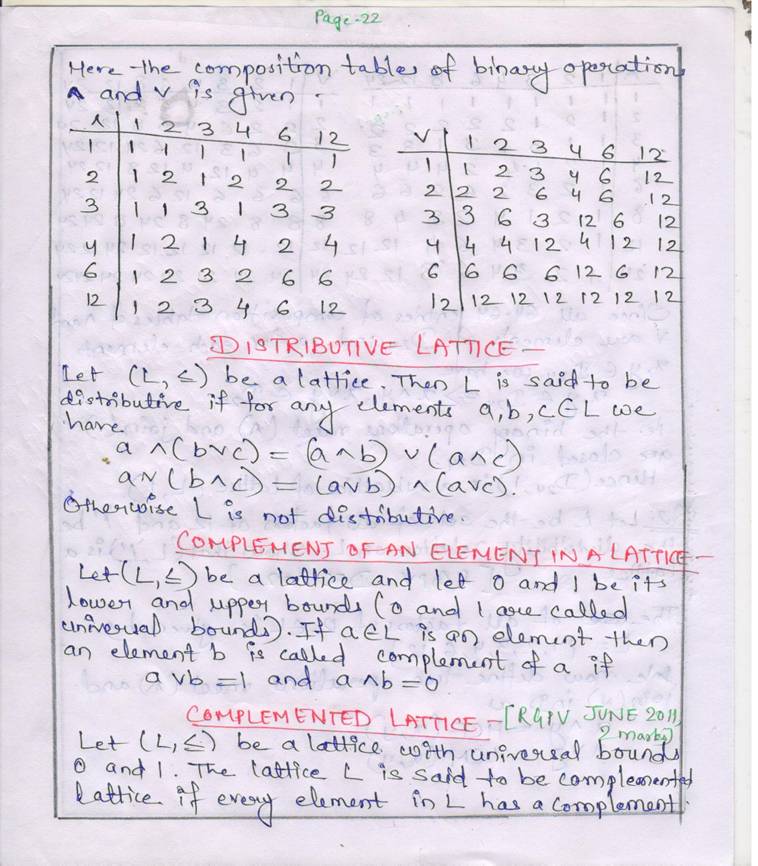 Page-22
Here the composition tables of binary operations
∧ and ∨ is given.
∧ 1 2 3 4 6 12
1 1 1 1 1 1 1
2 1 2 1 2 2 2
3 1 1 3 1 3 3
4 1 2 1 4 2 4
6 1 2 3 2 6 6
12 1 2 3 4 6 12
∨ 1 2 3 4 6 12
1 1 2 3 4 6 12
2 2 2 6 4 6 12
3 3 6 3 12 6 12
4 4 4 12 4 12 12
6 6 6 6 12 6 12
12 12 12 12 12 12 12
DISTRIBUTIVE LATTICE -
Let (L, ≤) be a lattice. Then L is said to be
distributive if for any elements a, b, c ∈ L we
have
a ∧ (b ∨ c) = (a ∧ b) ∨ (a ∧ c)
a ∨ (b ∧ c) = (a ∨ b) ∧ (a ∨ c).
Otherwise L is not distributive.
COMPLEMENT OF AN ELEMENT IN A LATTICE -
Let (L, ≤) be a lattice and let 0 and 1 be its
lower and upper bounds (0 and 1 are called
universal bounds). If a ∈ L is an element then
an element b is called complement of a if
a ∨ b = 1 and a ∧ b = 0
COMPLEMENTED LATTICE - [RGPV JUNE 2011,
2 marks]
Let (L, ≤) be a lattice with universal bounds
0 and 1. The lattice L is said to be complemented
lattice if every element in L has a complement.